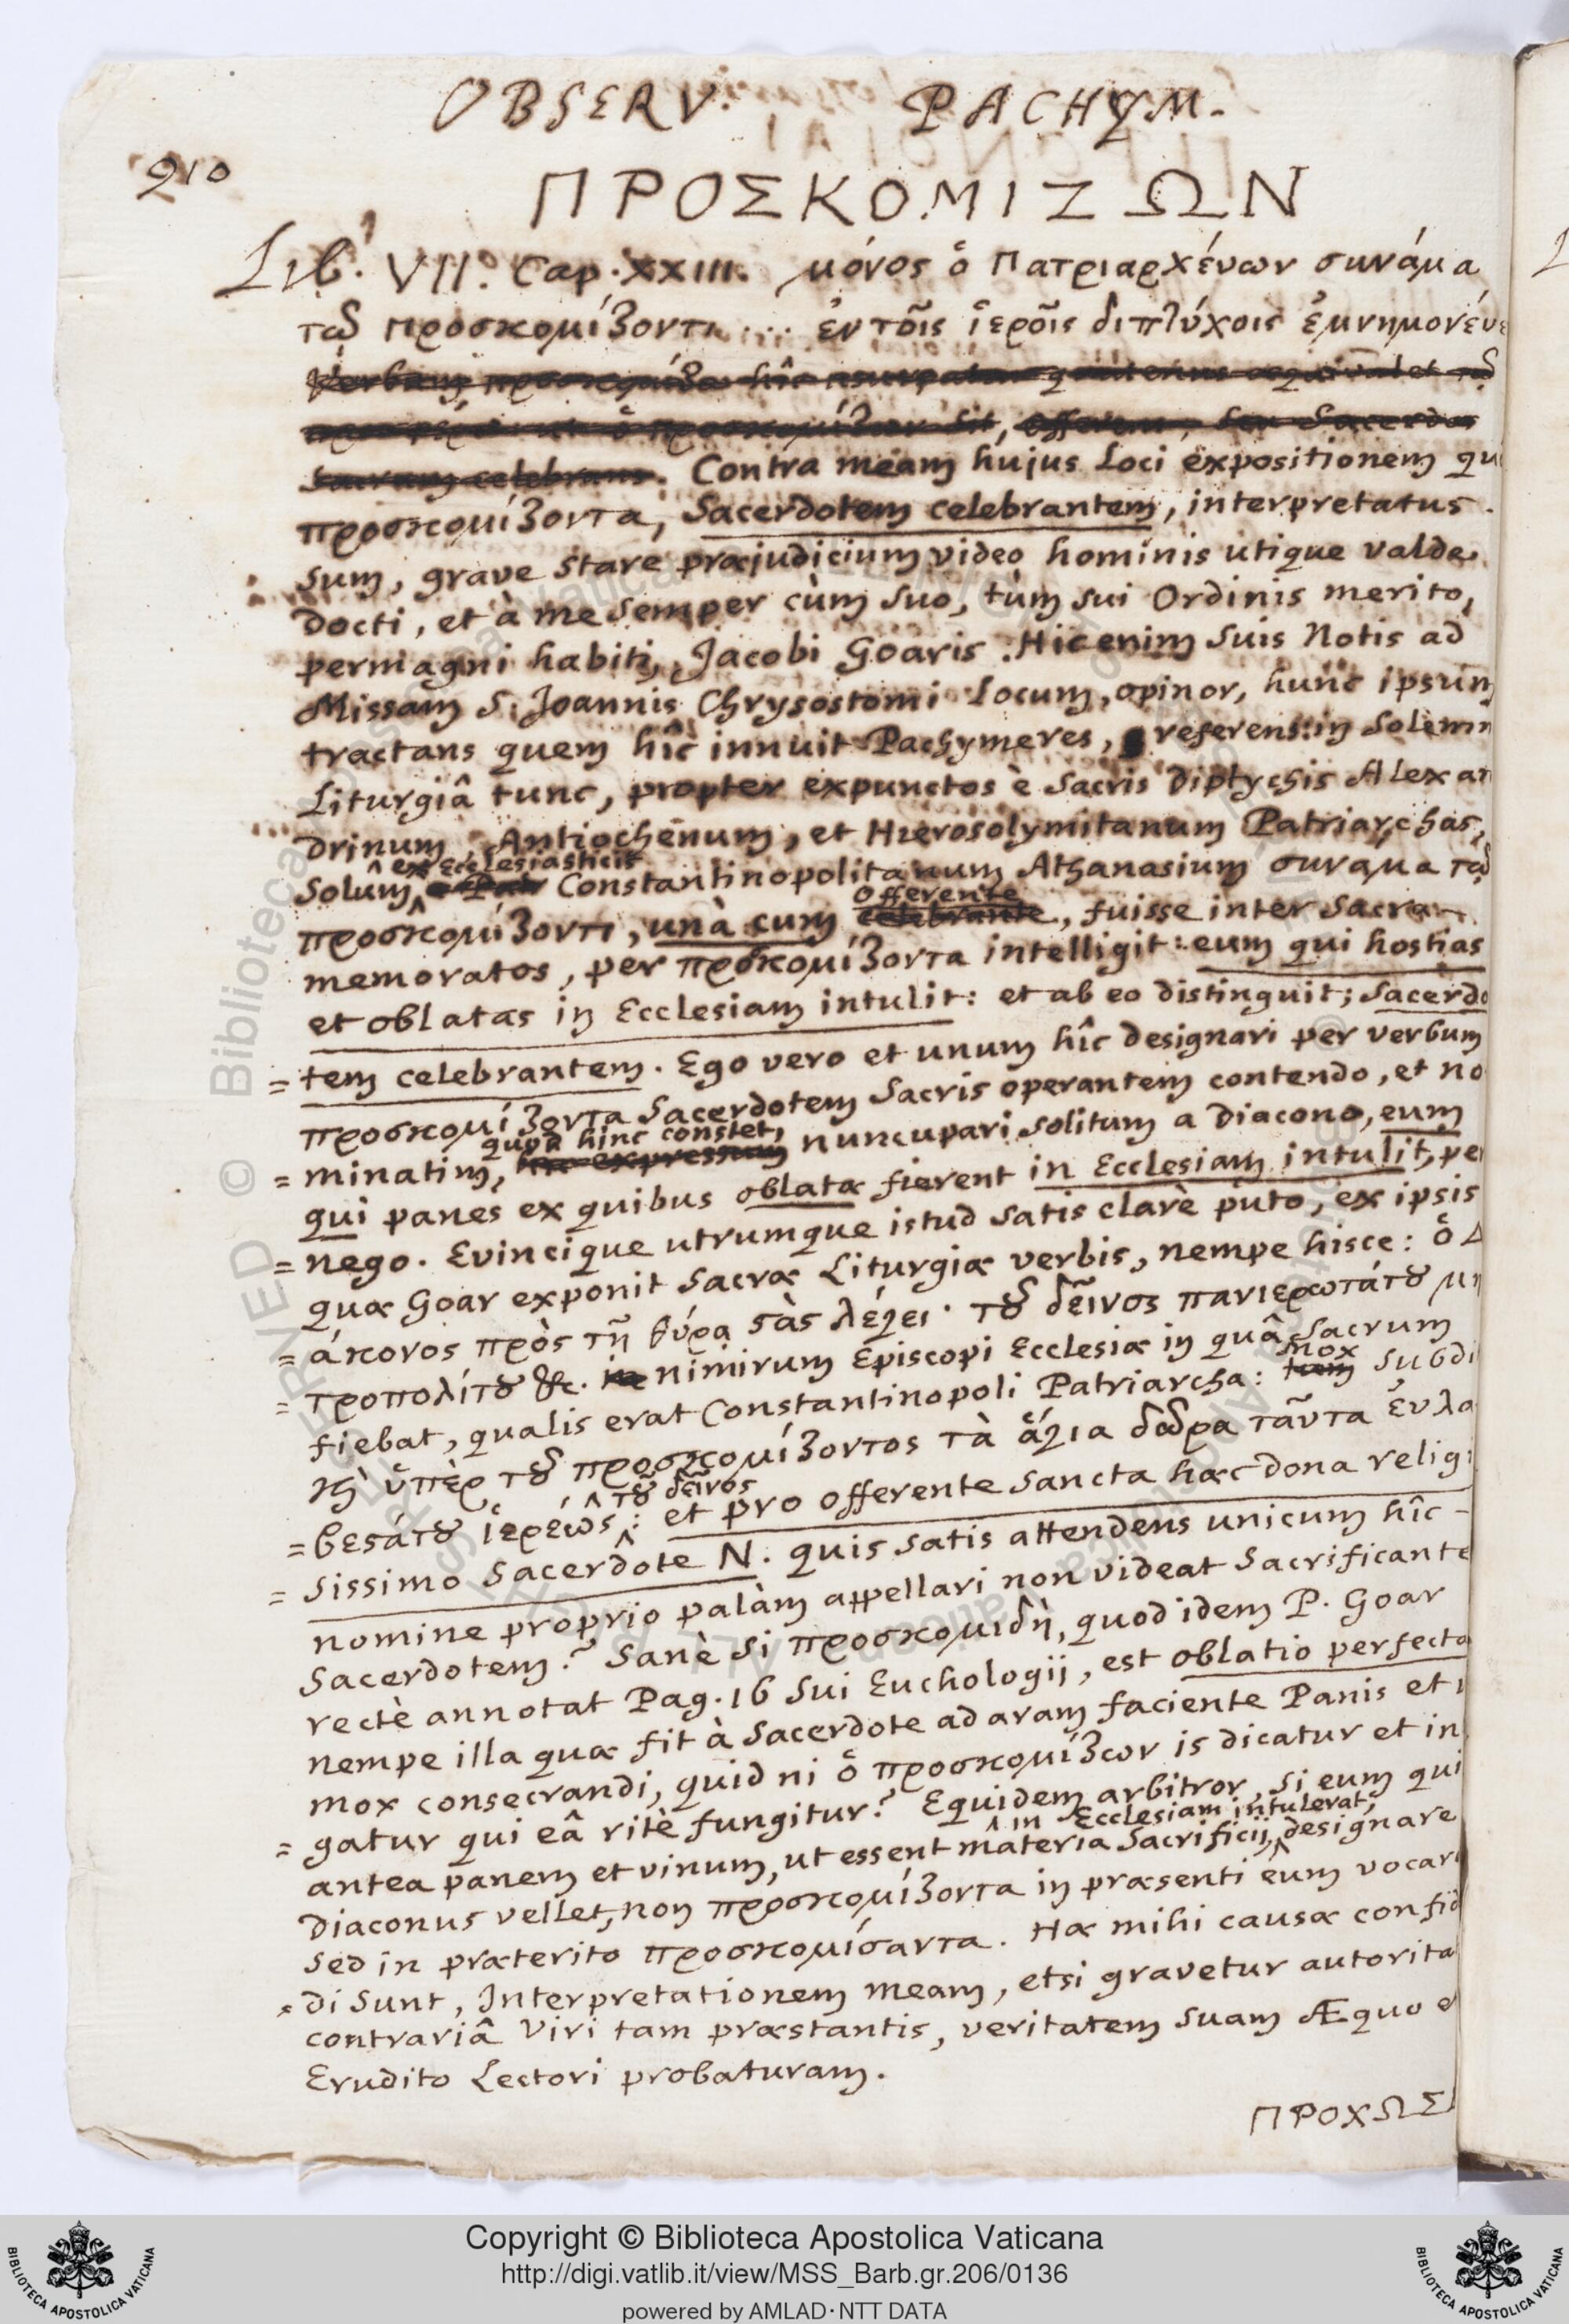 OBSERV. PACHYM.
210
ΠΡΟΣΚΟΜΙΖΩΝ
Lib. VII. Cap. XXIII. μόνος ὁ Πατριαρχέυων συνάμα
τῷ προσκομίζοντι ... ἐν τοῖς ἱεροῖς διπτύχοις ἐμνημονέυε
Verbum προσκομίζω hîc usurpatur quatenus aequivalet τῷ
ὁ προσκομίζων sit, offerens, seu Sacerdos
Sacrum celebrans. Contra meam hujus Loci expositionem qu
προσκομίζοντα, Sacerdotem celebrantem, interpretatus
sum, grave stare præjudicium video hominis utique valde
docti, et à me semper cùm suo, tùm sui Ordinis merito,
permagni habiti, Jacobi Goaris. Hic enim suis Notis ad
Missam S. Joannis Chrysostomi Locum, opinor, hunc ipsum
tractans quem hîc innuit Pachymeres, referens in Solemn
Liturgiâ tunc, propter expunctos è Sacris diptychis Alexan
drinum, Antiochenum, et Hierosolymitanum Patriarchas,
ex Ecclesiasticis
Solum Constantinopolitanum Athanasium συναμα τῷ
offerente
προσκομίζοντι, unà cum celebrante, fuisse inter Sacra
memoratos, per προσκομίζοντα intelligit: eum qui hostias
et oblatas in Ecclesiam intulit: et ab eo distinguit; Sacerdo
= tem celebrantem. Ego vero et unum hîc designari per verbum
προσκομίζοντα Sacerdotem Sacris operantem contendo, et no
quod hinc constet,
= minatim, hic expressum nuncupari solitum a Diacono, eum
qui panes ex quibus oblatæ fierent in Ecclesiam intulit, per
= nego. Evincique utrumque istud satis clarè puto, ex ipsis
quæ Goar exponit Sacræ Liturgiæ verbis, nempe hisce: ὁ Δ
= άκονος πρὸς τῇ θύρᾳ ϛὰς λέγει· τȣ͂ δεῖνος πανιερωτάτȣ μη
= τροπολίτȣ &c. nimirum Episcopi Ecclesiæ in quâ Sacrum
mox
fiebat, qualis erat Constantinopoli Patriarcha: tum subdi
ϗ ὑπὲρ τȣ͂ προσκομίζοντος τὰ ἅγια δῶρα ταῦτα ἐυλα
τȣ͂ δεῖνος
= βεϛάτȣ ἱερέως: et pro offerente sancta hæc dona religi
= sissimo Sacerdote N. quis satis attendens unicum hîc
nomine proprio palàm appellari non videat Sacrificante
Sacerdotem? Sanè si προσκομιδὴ, quod idem P. Goar
rectè annotat Pag. 16 sui Euchologij, est oblatio perfecta
nempe illa quæ fit à Sacerdote ad aram faciente Panis et
mox consecrandi, quid ni ὁ προσκομίζων is dicatur et in
= gatur qui eâ ritè fungitur? Equidem arbitror, si eum qui
in Ecclesiam intulerat,
antea panem et vinum, ut essent materia Sacrificij, designare
Diaconus vellet, non προσκομίζοντα in præsenti eum vocari
sed in præterito προσκομίσαντα. Hæ mihi causæ confid
= di sunt, Interpretationem meam, etsi gravetur autorita
contrariâ Viri tam præstantis, veritatem suam Æquo e
Erudito Lectori probaturam.
ΠΡΟΧΩΣ
© Biblioteca Apostolica Vaticana
Copyright © Biblioteca Apostolica Vaticana
http://digi.vatlib.it/view/MSS_Barb.gr.206/0136
powered by AMLAD·NTT DATA
BIBLIOTECA APOSTOLICA VATICANA
BIBLIOTECA APOSTOLICA VATICANA